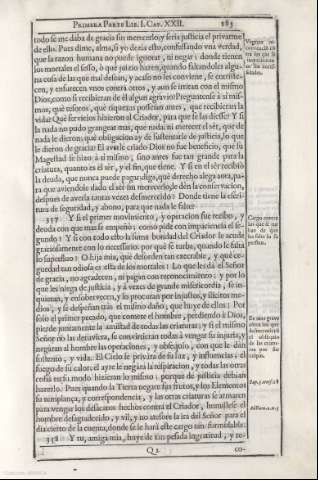 PRIMERA PARTE LIB. I. CAP. XXII. 183
todo se me daba de gracia sin merecerlo, y seria justicia el privarme
de ello. Pues dime, alma, si yo decia esto, confessando vna verdad,
que la razon humana no puede ignorar, ni negar: donde tienen
los mortales el sesso, ò què juizio hazen, quando faltandoles algu-
na cosa de las que mal desean, y acaso no les conviene, se contriste-
cen, y enfurecen vnos contra otros, y aun se irritan con el mismo
Dios, como si recibieran de èl algun agravio? Preguntense à sí mis-
mos, què tesoros, què riquezas posseìan antes, que recibieran la
vida? Què servicios hizieron al Criador, para que se las diesse? Y si
la nada no pudo grangear mas, que nada, ni merecer el sèr, que de
nada le dieron; què obligacion ay de sustentarle de justicia, lo que
le dieron de gracia? El averle criado Dios no fue beneficio, que su
Magestad se hizo à sí mismo; sino antes fue tan grande para la
criatura, quanto es el sèr, y el fin, que tiene. Y si en el sèr recibiò
la deuda, que nunca puede pagar; diga, què derecho alega aora, pa-
ra que aviendole dado el sèr sin merecerlo, le dèn la conservacion,
despues de averla tantas vezes desmerecido? Donde tiene la escri-
tura de seguridad, y abono, para que nada le falte?
357 Y si el primer movimiento, y operacion fue recibo, y
deuda con que mas se empeñò; como pide con impaciencia el se-
gundo? Y si con todo esto la suma bondad del Criador le acude
graciosamente con lo necessario; por què se turba, quando le falta
lo superfluo? O hija mia, què desorden tan execrable, y què ce-
guedad tan odiosa es esta de los mortales! Lo que les dà el Señor
de gracia, no agradecen, ni pagan con reconocimiento; y por lo
que les niega de justicia, y à vezes de grande misericordia, se in-
quietan, y ensobervecen, y lo procuran por injustos, y ilicitos me-
dios, y se despeñan tras el mismo daño, que huye de ellos. Por
solo el primer pecado, que comete el hombre, perdiendo à Dios,
pierde juntamente la amistad de todas las criaturas; y si el mismo
Señor no las detuviera, se convirtieran todas à vengar su injuria, y
negaran al hombre las operaciones, y obsequio, con que le dàn
sustento, y vida. El Cielo le privàra de su luz, y influencias; el
fuego de su calor; el ayre le negàra la respiracion, y todas las otras
cosas en su modo hizieran lo mismo; porque de justicia debian
hazerlo. Pero quando la Tierra negare sus frutos, y los Elementos
su templança, y correspondencia, y las otras criaturas se armaren
para vengar los desacatos hechos contra el Criador, humillese el
hombre desagradecido, y vil, y no atesore la ira del Señor para el
dia cierto de la cuenta, donde se le harà este cargo tan formidable.
358 Y tu, amiga mia, huye de tan pesada ingratitud, y re-
Q 2 co-
Sap. 5. vers. 18.